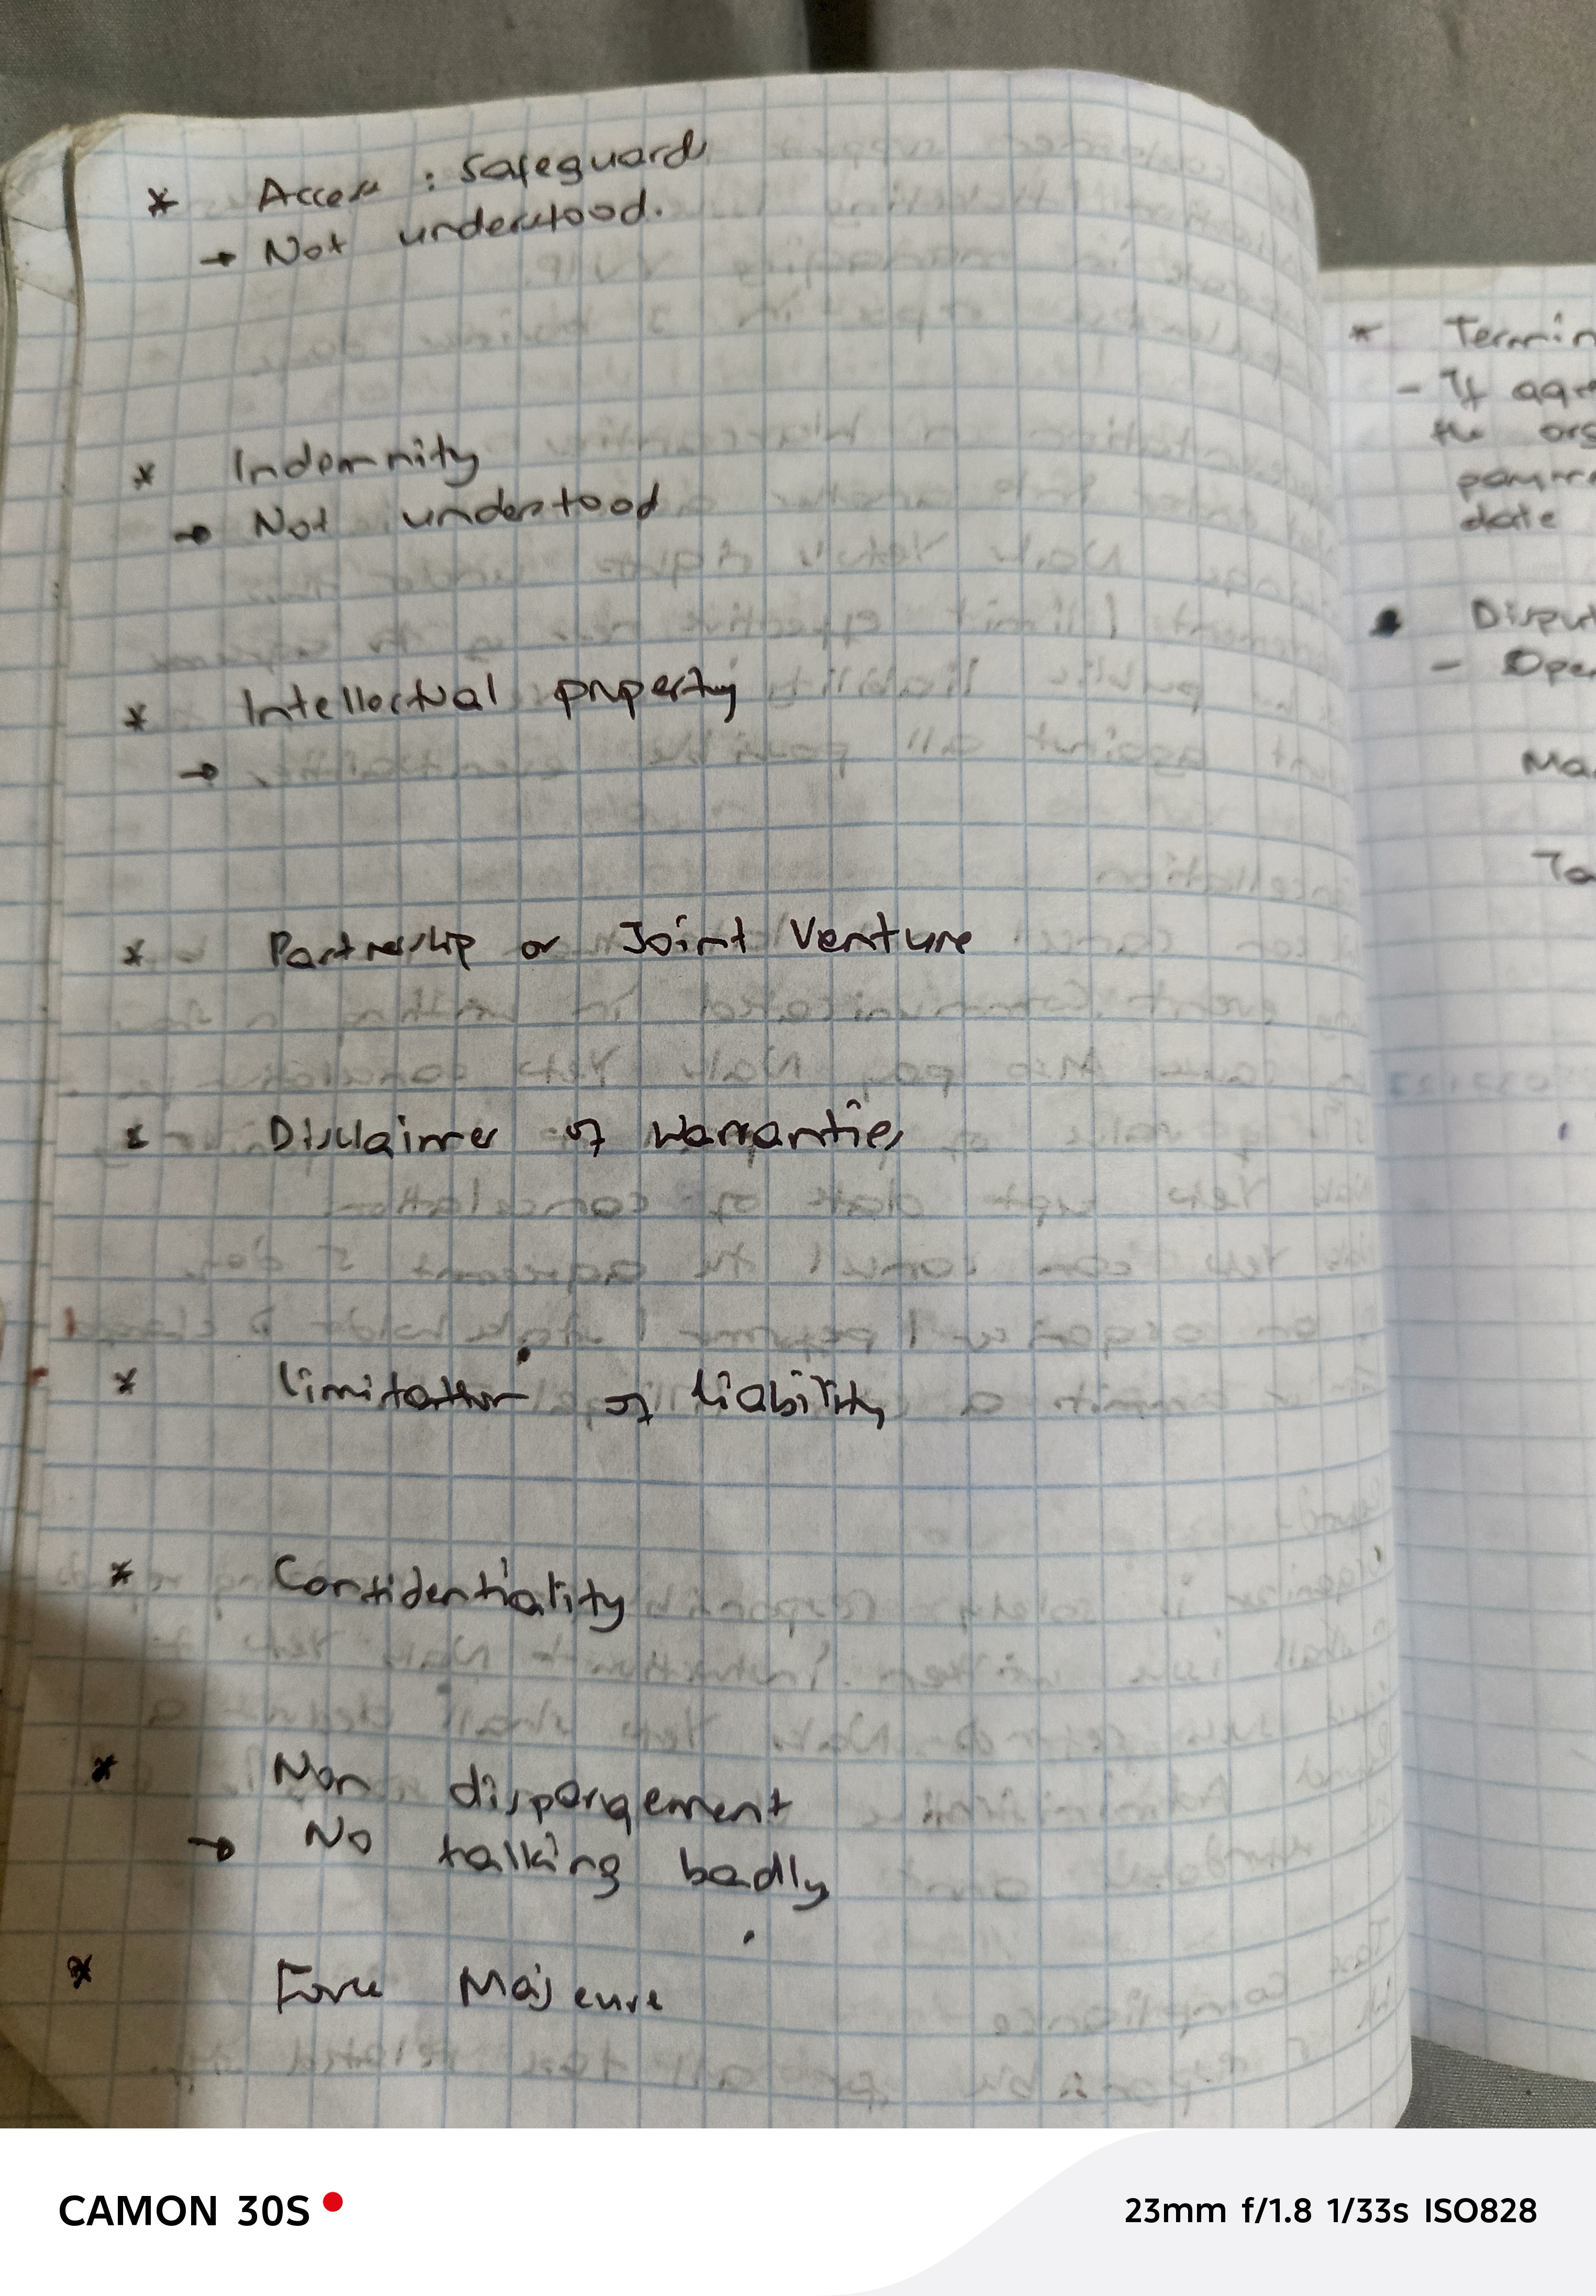 * Access : Safeguards
→ Not understood.
* Indemnity
→ Not understood
* Intellectual property
→
* Partnership or Joint Venture
* Disclaimer of Warranties
* limitation of liability
* Confidentiality
* Non disparagement
→ No talking badly
* Force Majeure
* Termin
- If agre
the org
paym
date
Disput
- Oper
Ma
To
CAMON 30S
23mm f/1.8 1/33s ISO828